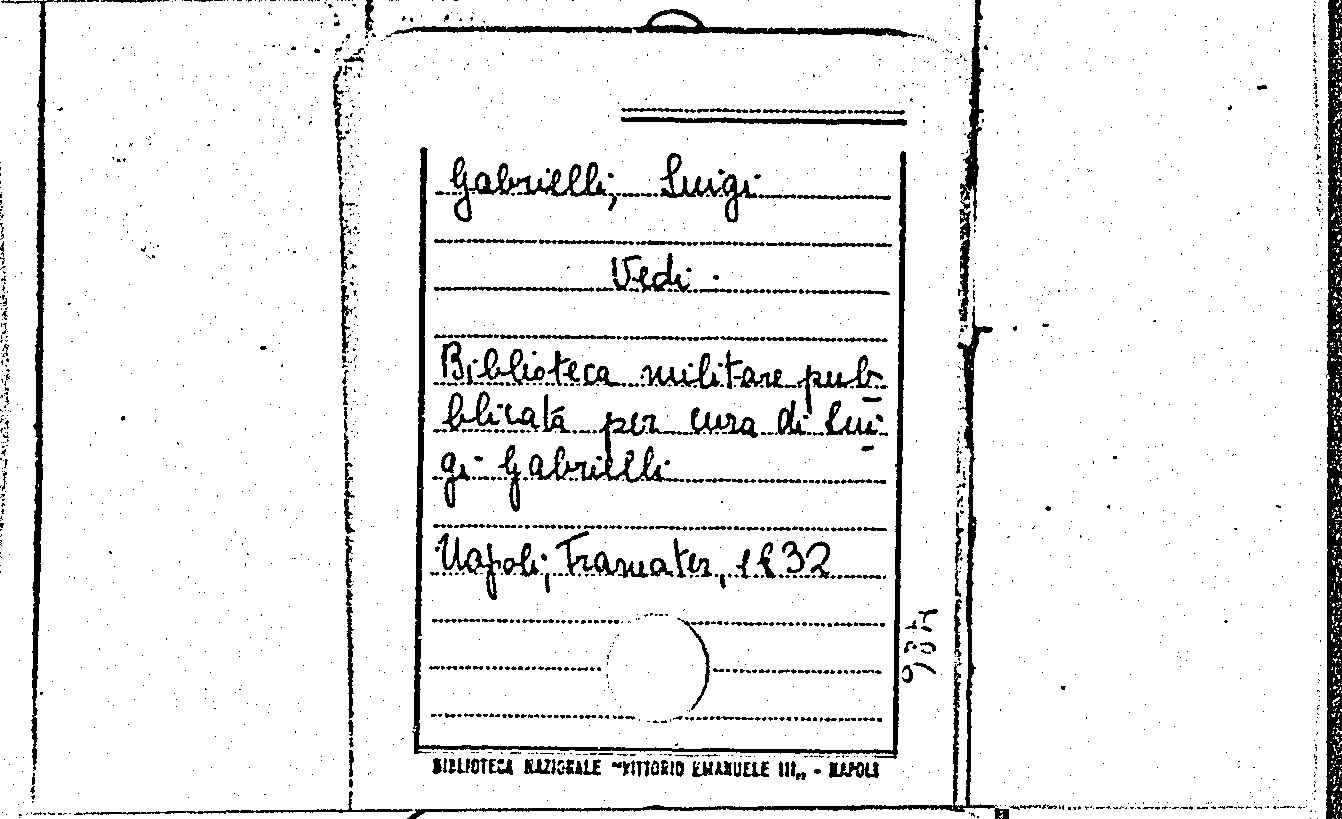 Gabrielli, Luigi
Vedi.
Biblioteca militare pub-
blicata per cura di Lui-
gi Gabrielli
Napoli, Tramater, 1832
BIBLIOTECA NAZIONALE "VITTORIO EMANUELE III„ - NAPOLI